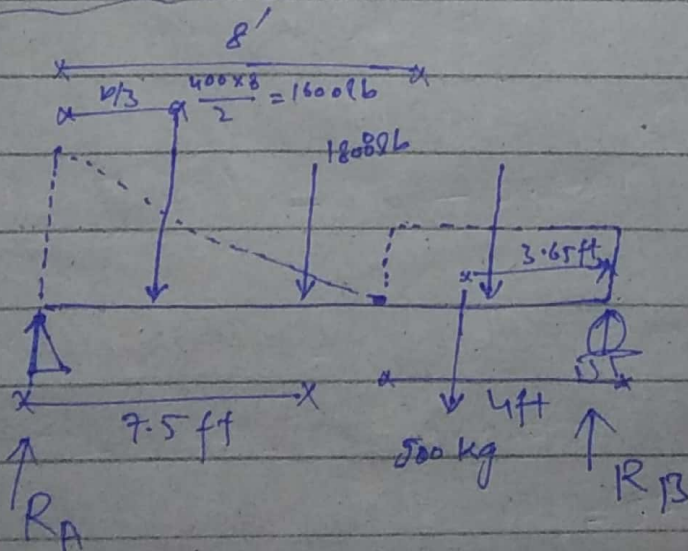 8'
b/3
400×8/2 = 1600lb
1800lb
3.65ft
7.5ft
4ft
500kg
RA
RB